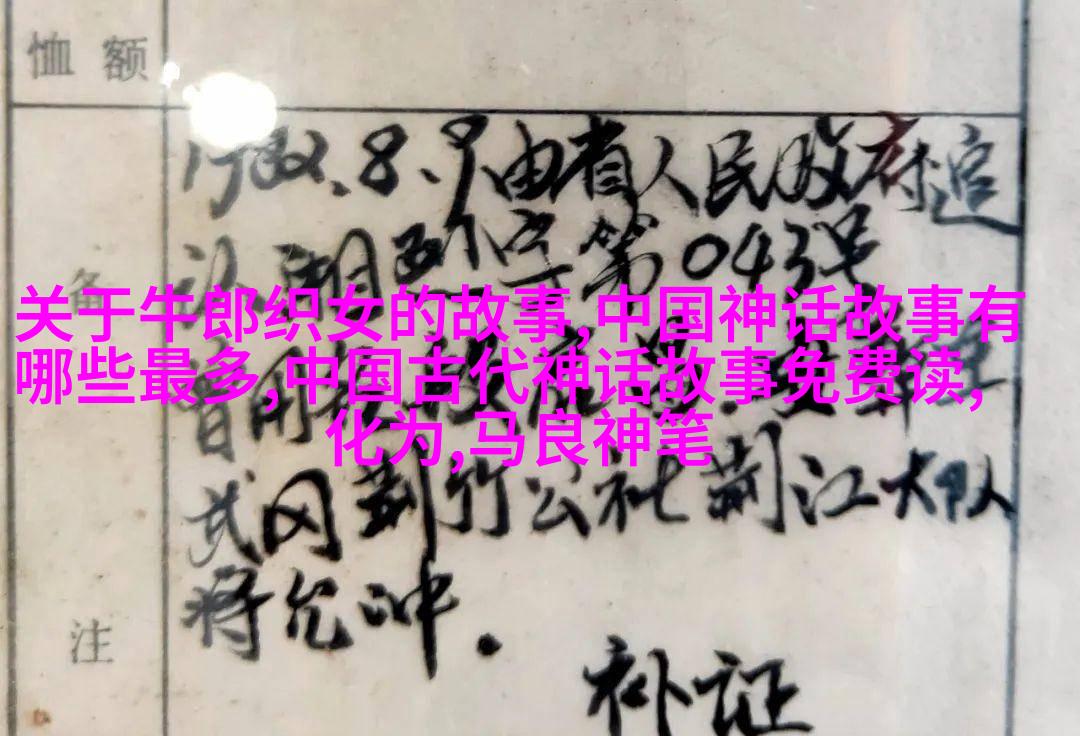 恤额
1982.8.9由省人民政府追
认,湖烈字第043号
备
关于牛郎织女的故事,中国神话故事有
哪些最多,中国古代神话故事免费读,
化为,马良神笔
武冈荆竹公社荆江大队
蒋允冲.
注
补证